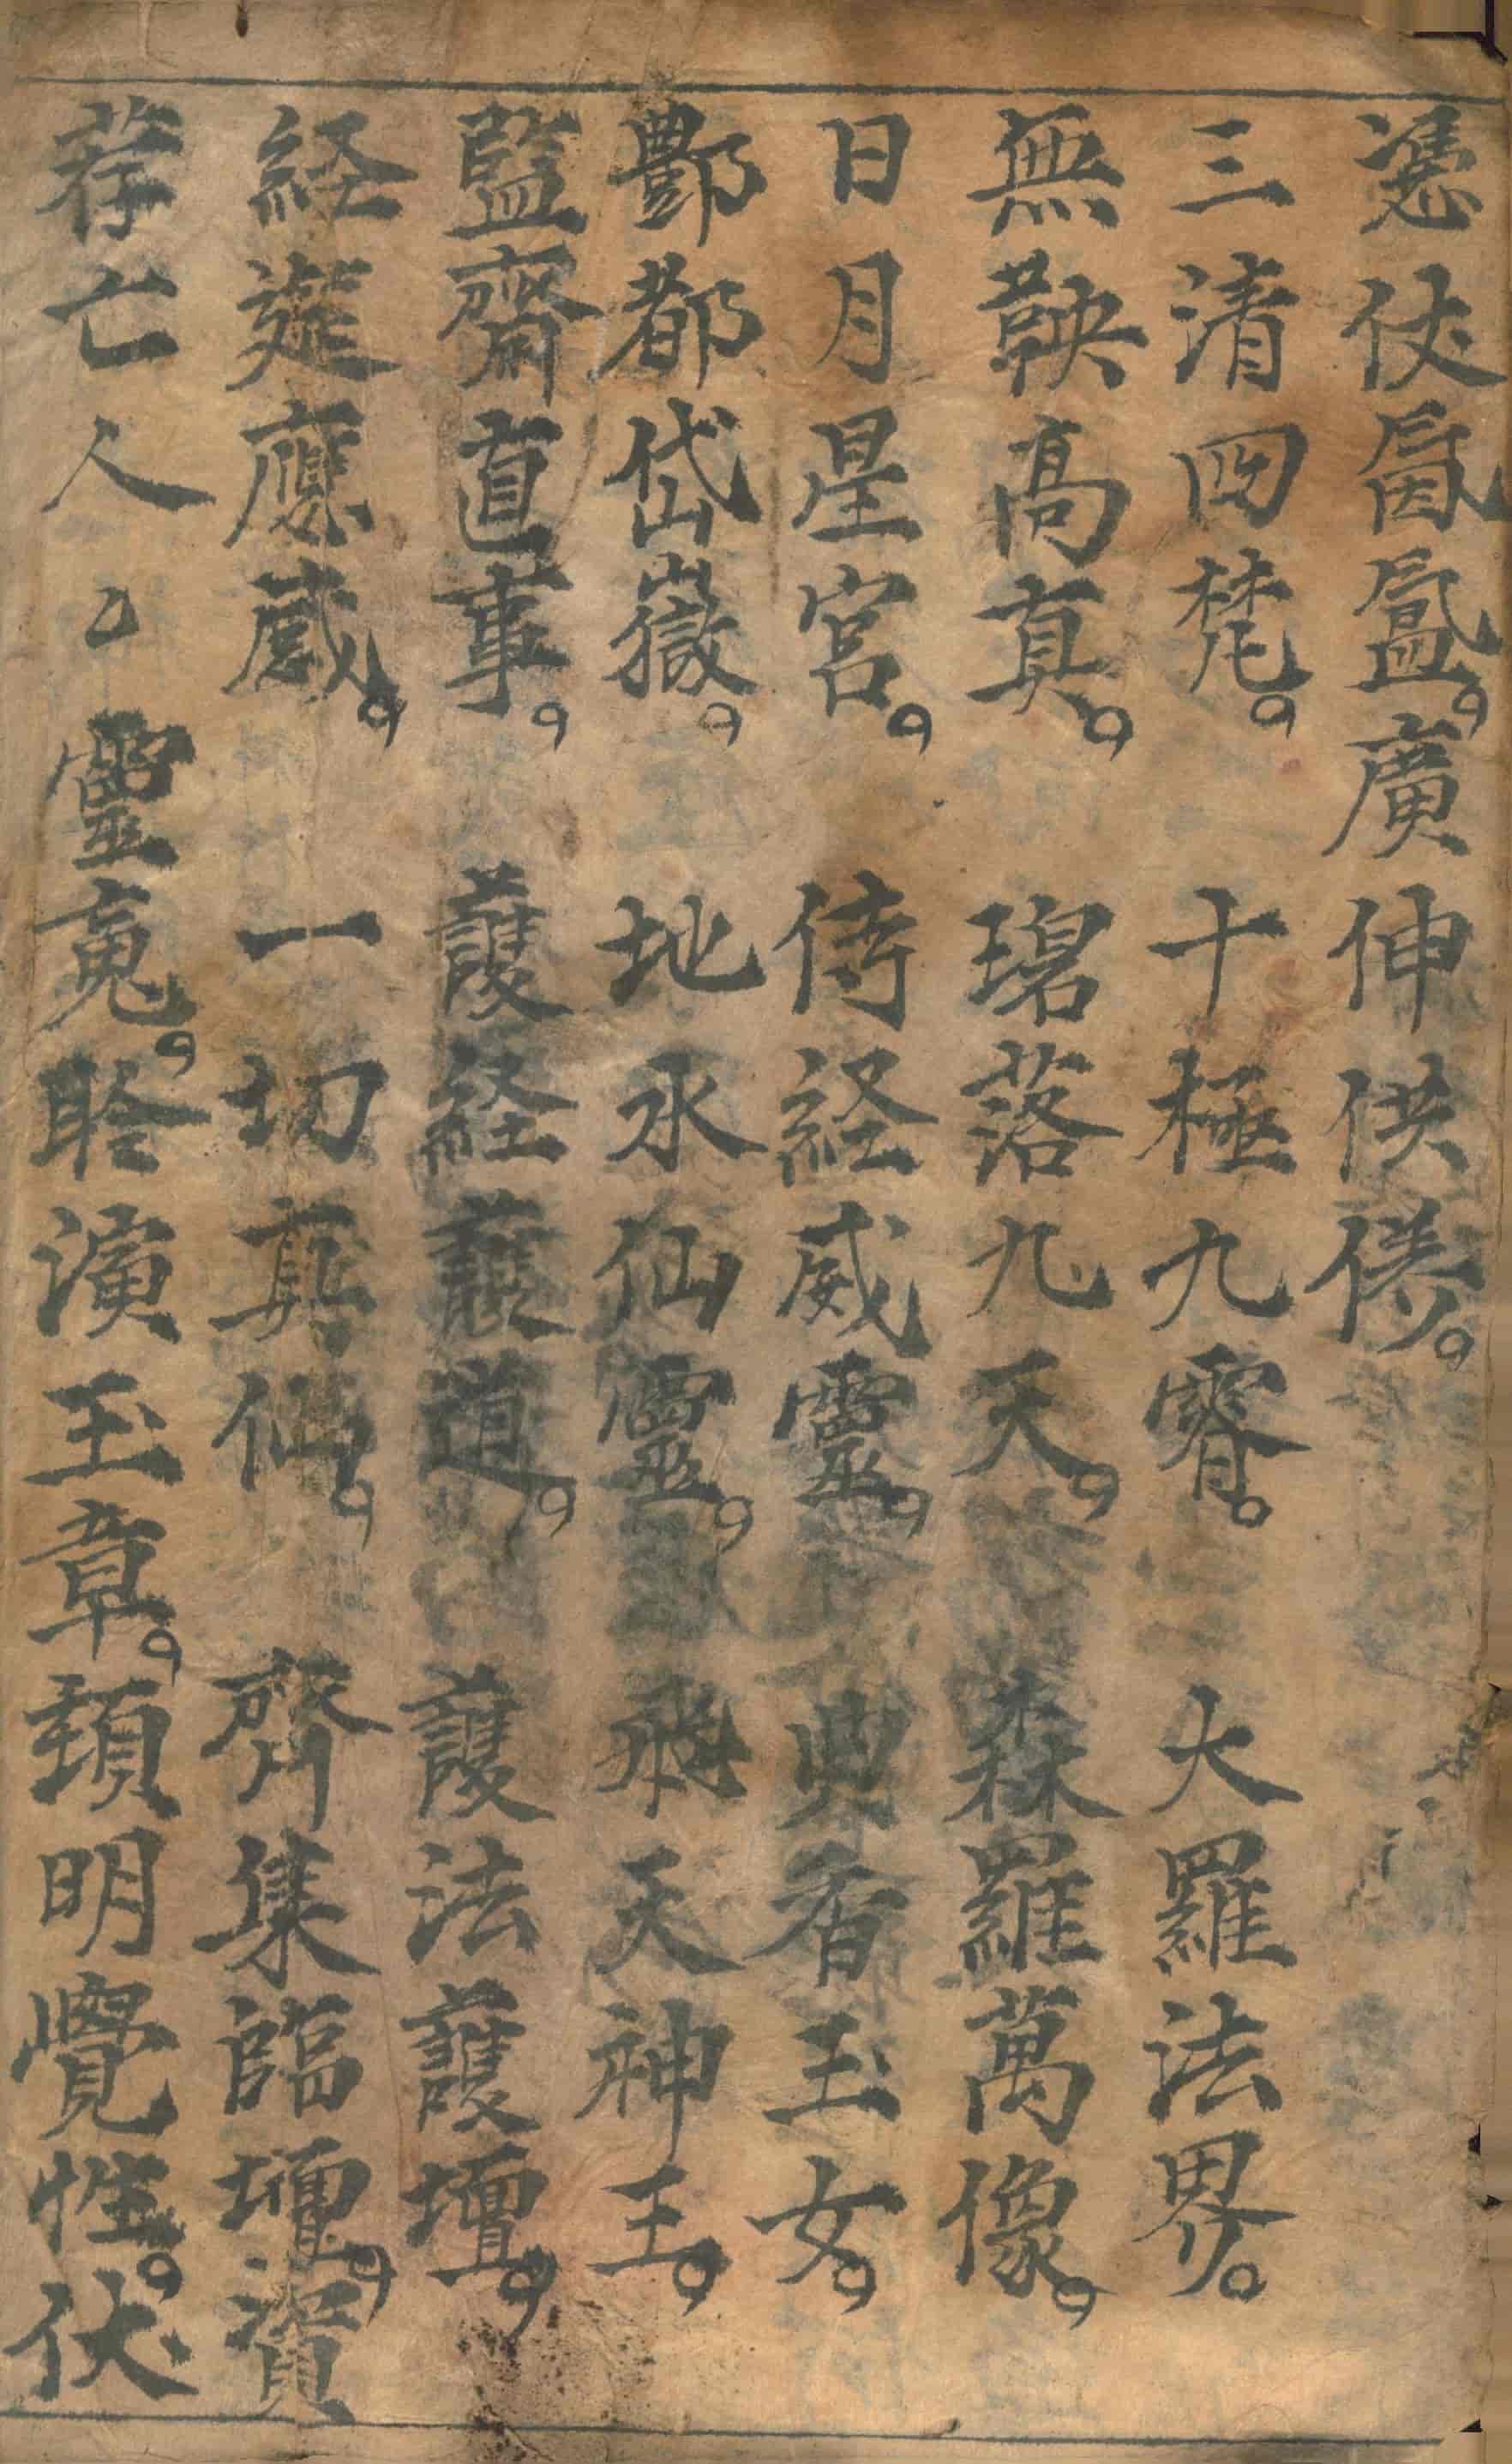 憑仗𩇕𩇓。廣伸供俻。
三清四梵。十極九霄。大羅法界。
無鞅高真。碧落九天。森羅萬像。
日月星宮。侍経威靈。典香玉女。
酆都岱嶽。地水仙靈。飛天神王。
監齋直事。護経護道。護法護壇。
経筵應感。一切真仙。齊集臨壇。資
荐亡人乙靈䰟。聆演玉章。頓明覺性。伏